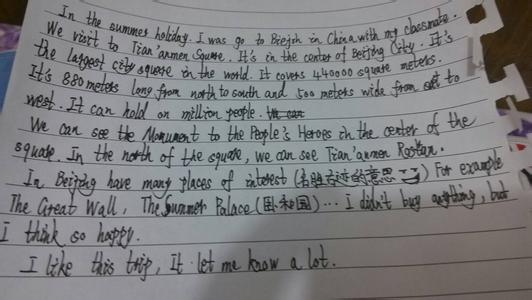 In the summer holiday. I was go to Biejsh in China with my classmate.
We visit to Tian'anmen Square. It's in the center of Beijing City. It's
the largest city square in the world. It covers 440000 square meters.
It's 880 meters long from north to south and 500 meters wide from to
west. It can hold on million people.
We can see the Monument to the People's Heroes in the center of the
square. In the north of the square, we can see Tian'anmen
In Beijing have many places of interest (名胜古迹的意思) For example
The Great Wall, The summer Palace ... I didn't buy anything, but
I think so happy.
I like this trip, It let me know a lot.